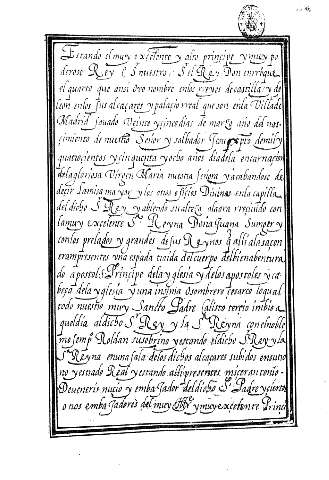 Estando el muy excelente y alto principe y muy po
deroso Rey E Sr nuestro, Sr el Rey Don enrrique
el quarto que ansi ovo nombre en los reynes de castilla y de
leon en los sus alcaçares y palaçio rreal que son en la Villa de
Madrid sauado Veinte y cinco dias de março año del nas
cimiento de nuestro Señor y salbador Jesucripto de mil y
quatrocientos y cinquenta y ocho años dia de la encarnacion
de la gloriosa Virgen Maria nuestra señora y acabandose de
decir la misa mayor y los otros oficios Divinos en la capilla
del dicho Sr Rey y abiendo su alteza a la ora rrecivido con
la muy excelente Sra Reyna Doña Juana Su muger y
con los prelados y grandes de sus Reynos q alli a la saçon
eran presentes una espada traida del cuerpo del bienabentura
do apostol Principe de la yglesia y de los apostoles y ca
beça de la yglesia y una insinia o sombrero cesareo lo qual
todo nuestro muy Santto Padre Calisto tercio imbia
quel dia al dicho Sr Rey y la Sra Reyna con el noble
Roldan su sobrino y estando el dicho Sr Rey y la
Sra Reyna en una sala de los dichos alcaçares subidos en su tro
no y estrado Real y estando alli presentes micer antonio
De veneris nucio y embajador del dicho Sto Padre y ciertos
o nos embajadores del muy y muy excelente Princi